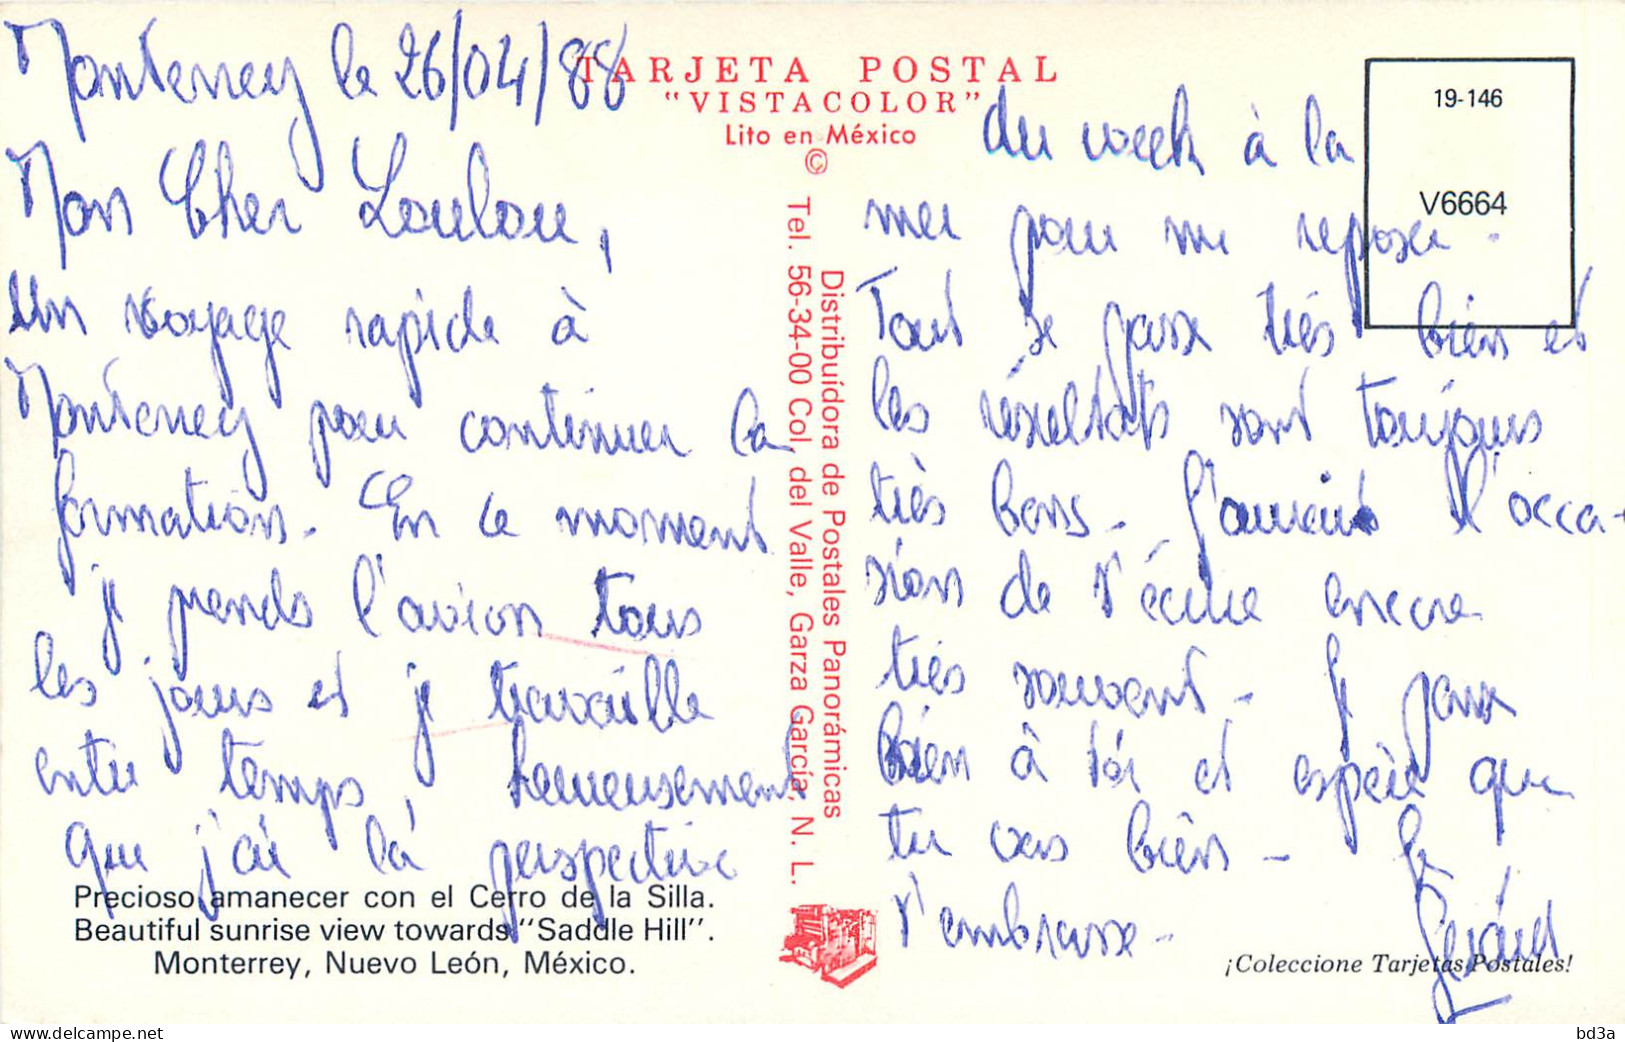 Monterrey le 26/04/88
Mon Cher Loulou,
Un voyage rapide à
Monterrey pour continuer la
formation. En ce moment
je prends l'avion tous
les jours et je travaille
entre temps, heureusement
que j'ai la perspective
du week à la
mer pour me reposer.
Tout se passe très bien et
les résultats sont toujours
très bons. J'aurais l'occa-
sion de t'écrire encore
très souvent. Je pense
bien à toi et espère que
tu vas bien. Je
t'embrasse.
Gérard
TARJETA POSTAL
"VISTACOLOR"
Lito en México
©
Distribuídora de Postales Panorámicas
Tel. 56-34-00 Col. del Valle, Garza García, N. L.
19-146
V6664
Precioso amanecer con el Cerro de la Silla.
Beautiful sunrise view towards "Saddle Hill".
Monterrey, Nuevo León, México.
¡Coleccione Tarjetas Postales!
www.delcampe.net
bd3a